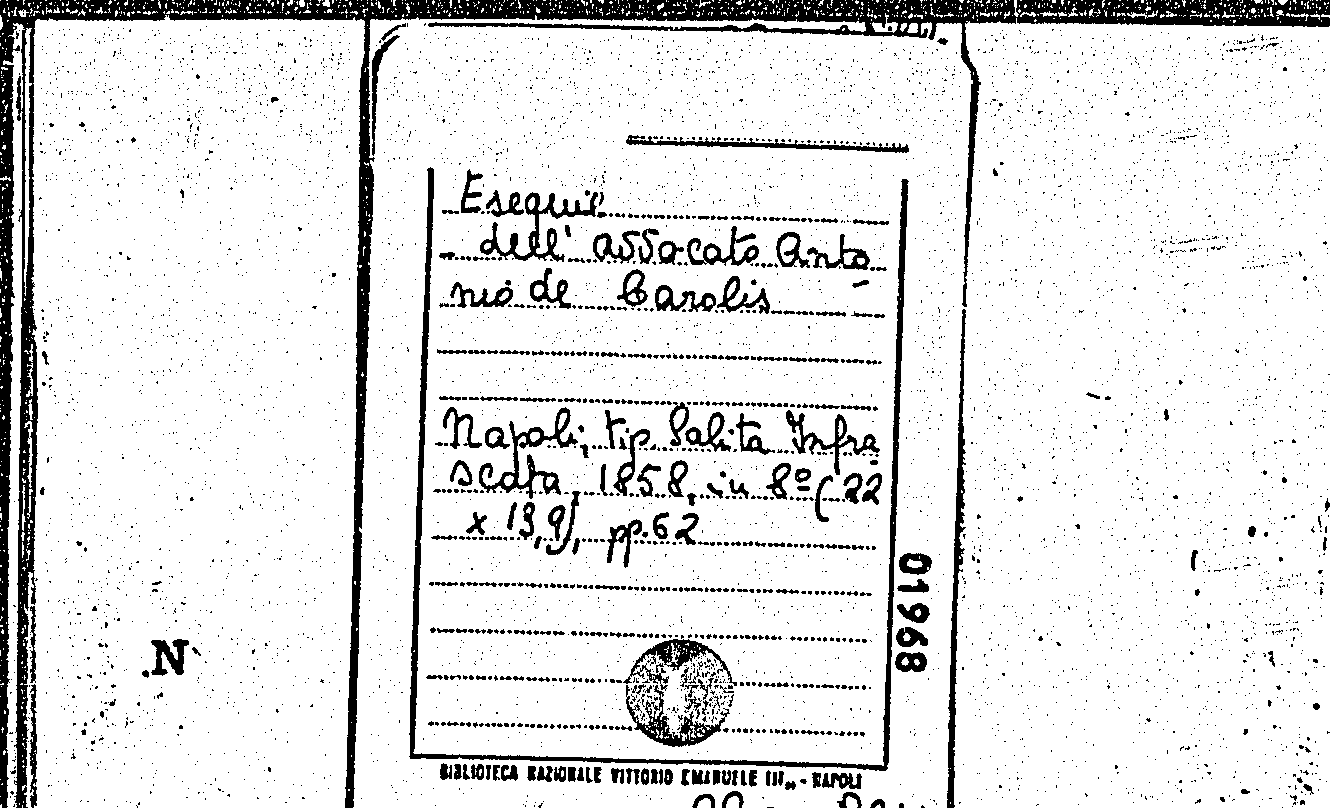 Esequie
dell' avvocato Anto
nio de Carolis
Napoli, tip. Salita Infra
scata, 1858, in 8º (22
x 13,9), pp. 62
01968
N
BIBLIOTECA NAZIONALE VITTORIO EMANUELE III„ - NAPOLI